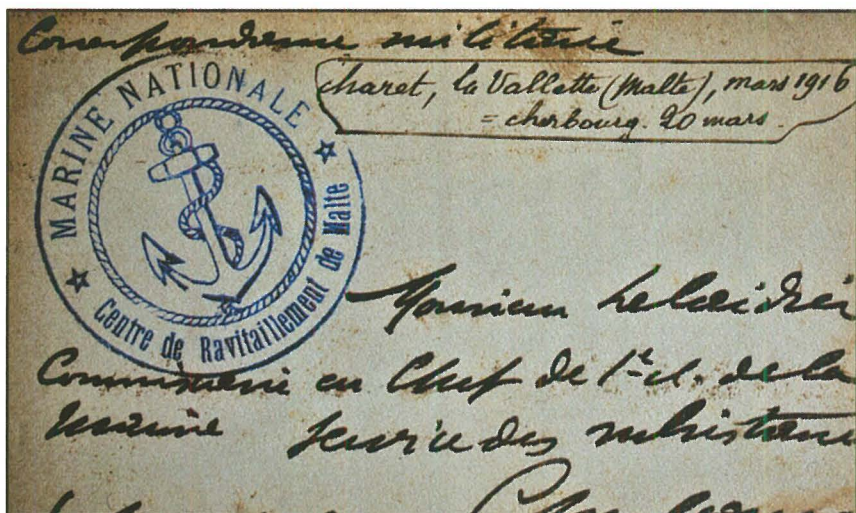 Correspondance militaire
charet, la Vallette (Malte), mars 1916
= cherbourg. 20 mars.
MARINE NATIONALE
Centre de Ravitaillement de Malte
Monsieur
Commissaire en Chef de 1e cl. de la
Marine Service des subsistances